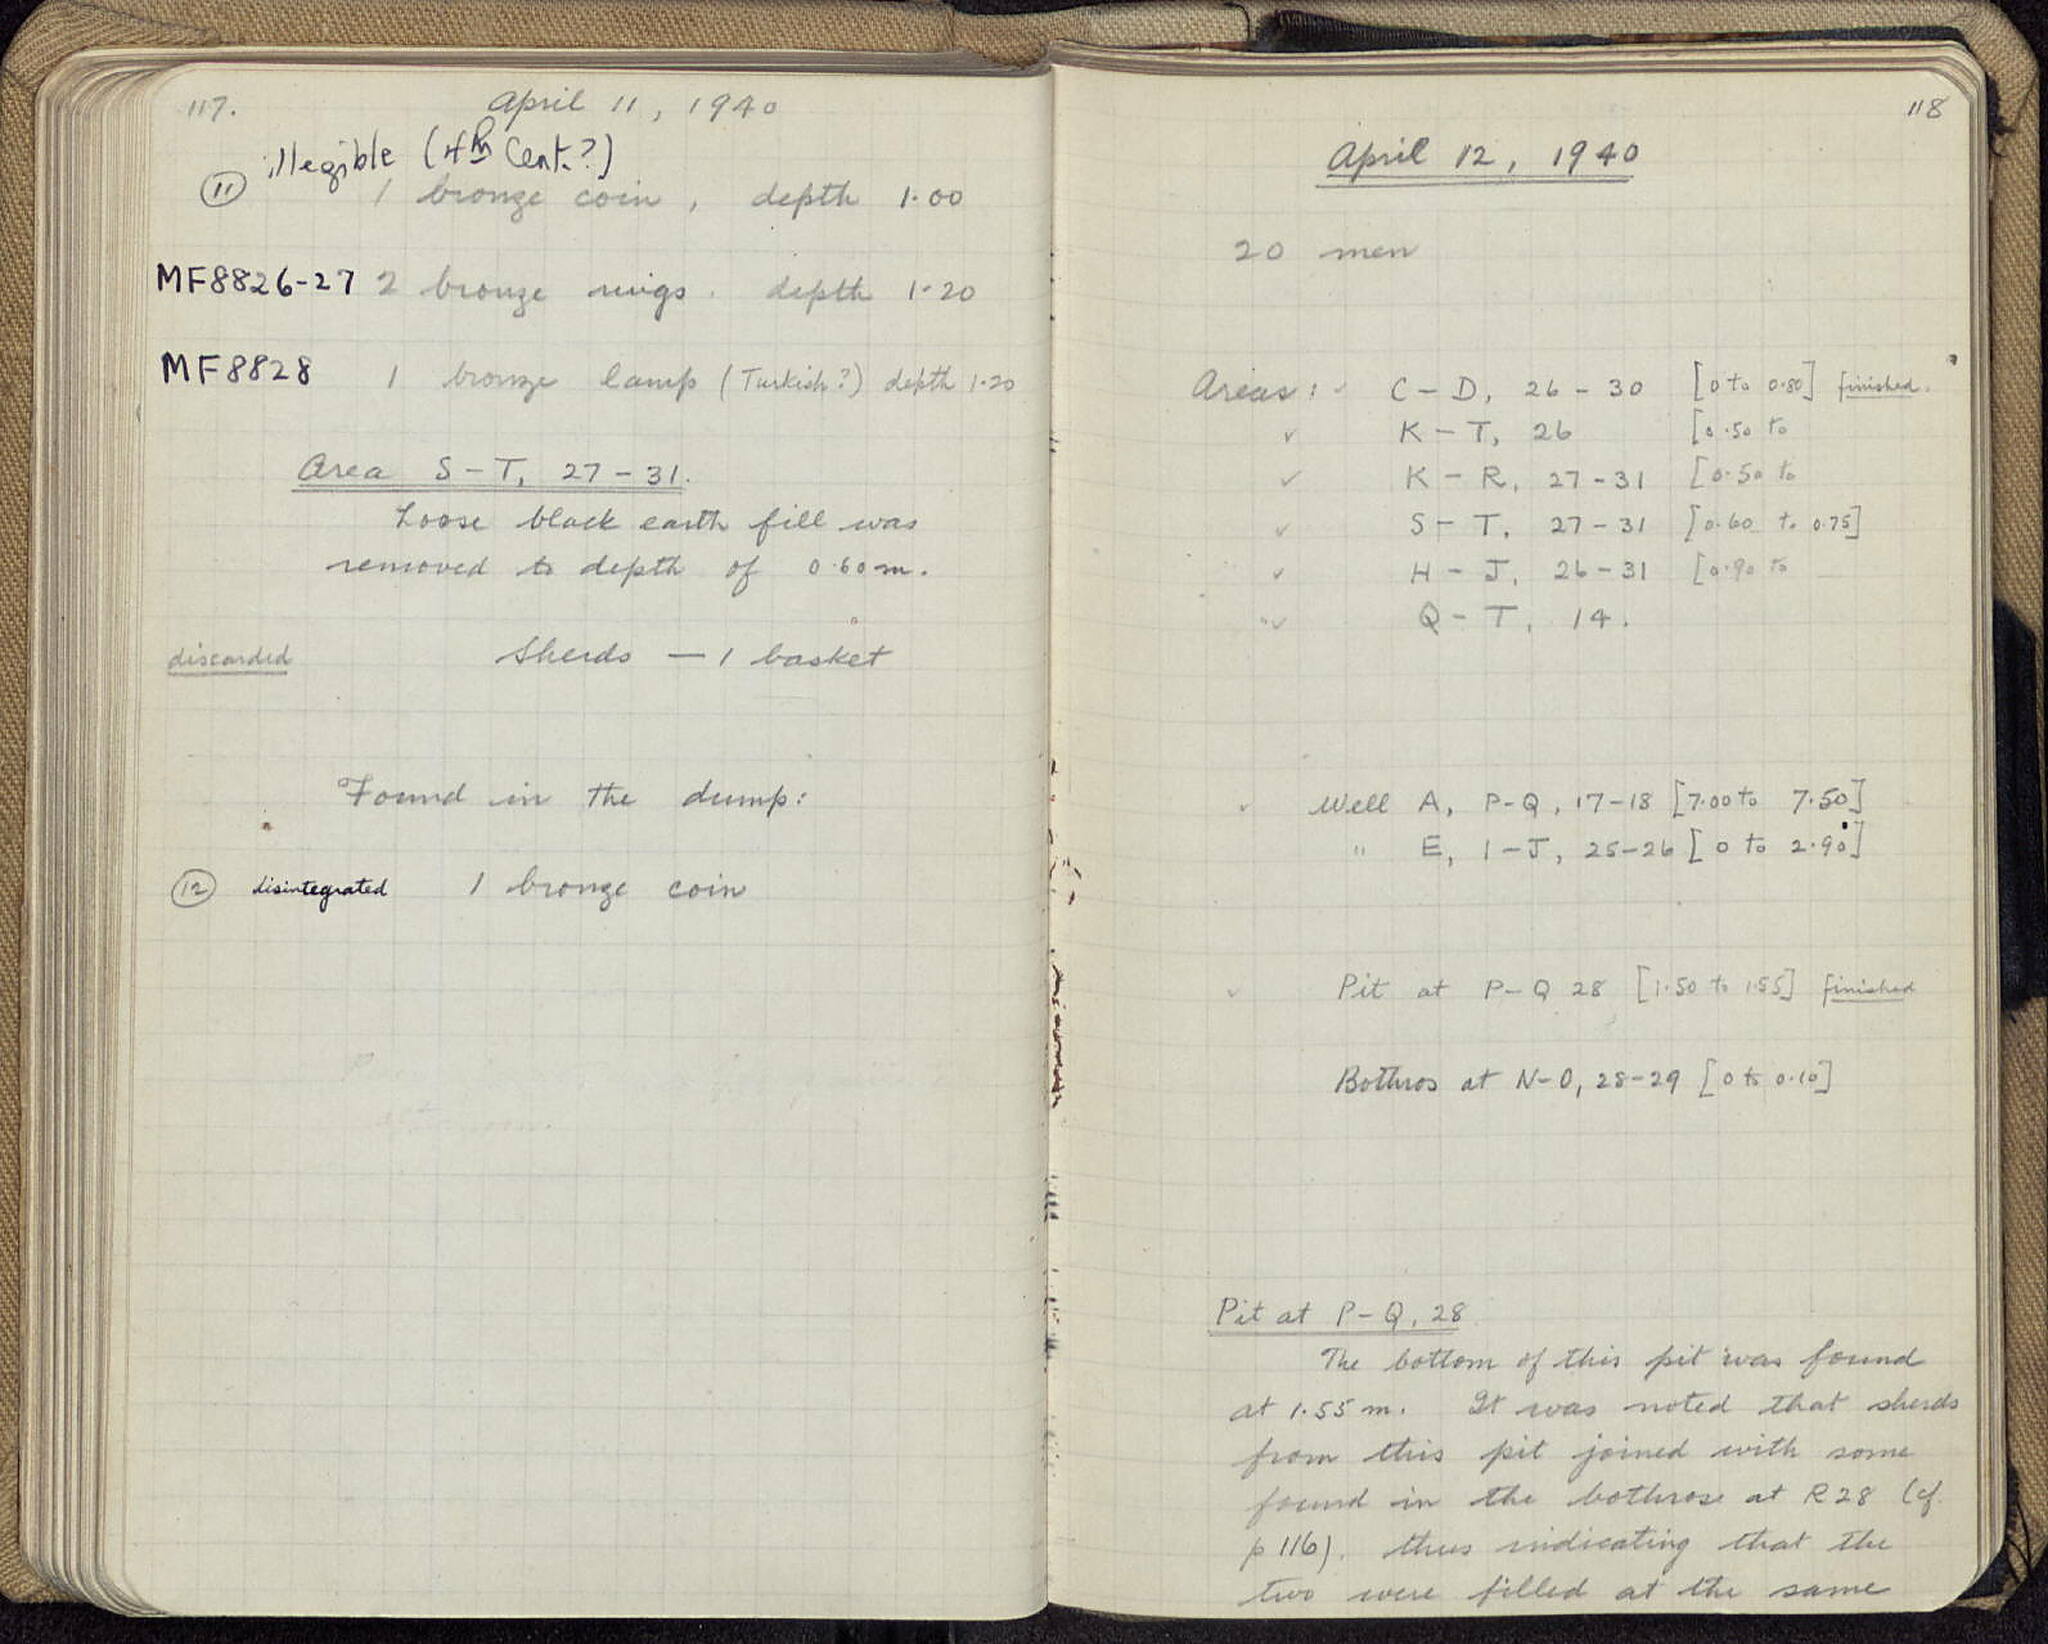 117.
April 11, 1940
illegible (4th Cent.?)
11 1 bronze coin, depth 1.00
MF8826-27 2 bronze rings. depth 1.20
MF8828 1 bronze lamp (Turkish?) depth 1.20
Area S-T, 27-31.
Loose black earth fill was
removed to depth of 0.60 m.
discarded Sherds — 1 basket
Found in the dump:
12 disintegrated 1 bronze coin
118
April 12, 1940
20 men
Areas: ✓ C-D, 26-30 [0 to 0.80] finished.
✓ K-T, 26 [0.50 to
✓ K-R, 27-31 [0.50 to
✓ S-T, 27-31 [0.60 to 0.75]
✓ H-J, 26-31 [0.90 to
✓ Q-T, 14.
✓ Well A, P-Q, 17-18 [7.00 to 7.50]
" E, I-J, 25-26 [0 to 2.90]
✓ Pit at P-Q 28 [1.50 to 1.55] finished
Bothros at N-O, 28-29 [0 to 0.10]
Pit at P-Q, 28
The bottom of this pit was found
at 1.55 m. It was noted that sherds
from this pit joined with some
found in the bothrose at R28 (cf.
p 116). thus indicating that the
two were filled at the same